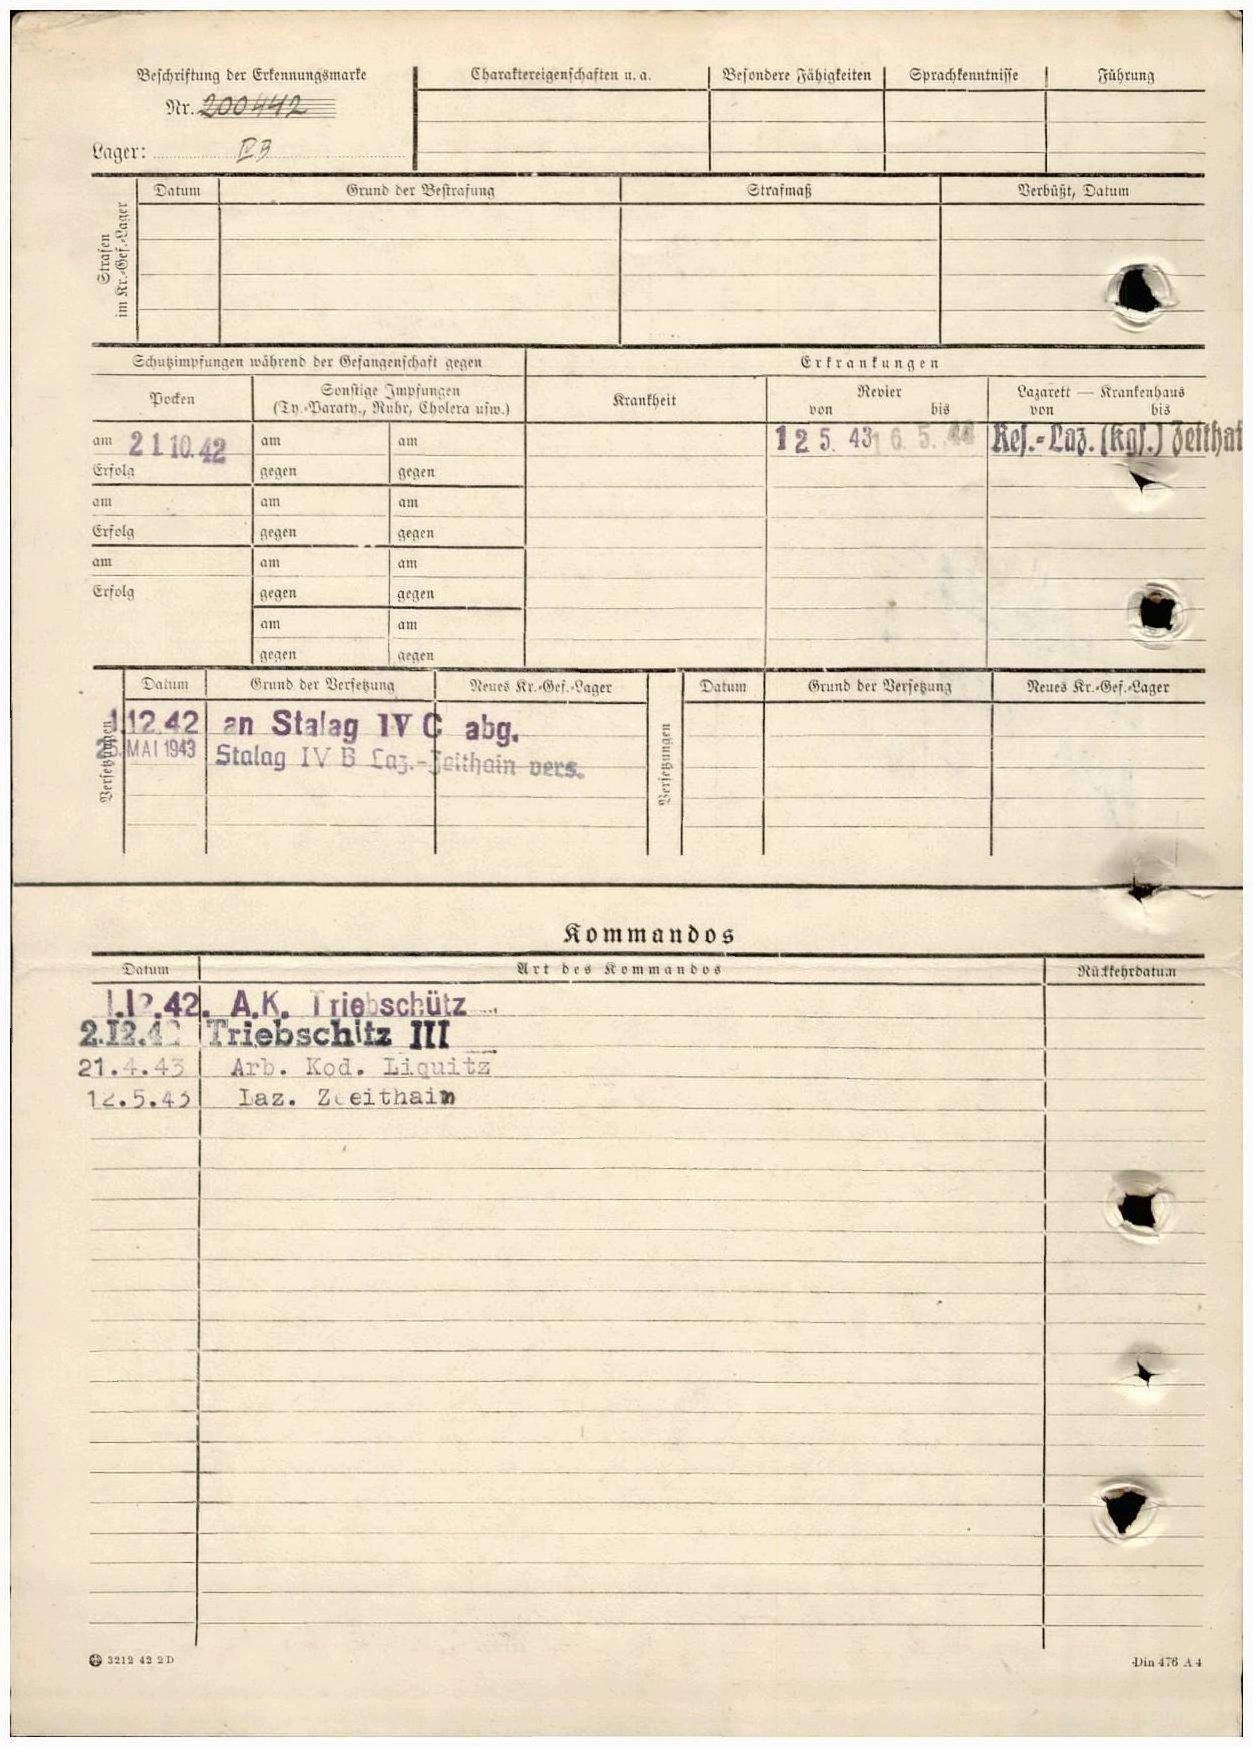 Beschriftung der Erkennungsmarke
Nr. 200442
Lager: IV B
Charaktereigenschaften u. a.
Besondere Fähigkeiten
Sprachkenntnisse
Führung
Strafen im Kr.-Gef.-Lager
Datum
Grund der Bestrafung
Strafmaß
Verbüßt, Datum
Schutzimpfungen während der Gefangenschaft gegen
Erkrankungen
Pocken
Sonstige Impfungen
(Ty.-Paraty., Ruhr, Cholera usw.)
Krankheit
Revier
von bis
Lazarett — Krankenhaus
von bis
am 21.10.42 am am
12 5. 43 16. 5. 44 Res.-Laz. (Kgf.) Zeithai
Erfolg gegen gegen
am am am
Erfolg gegen gegen
am am am
Erfolg gegen gegen
am am
gegen gegen
Versetzungen
Datum Grund der Versetzung Neues Kr.-Gef.-Lager
1.12.42 an Stalag IV C abg.
25. MAI 1943 Stalag IV B Laz.-Zeithain vers.
Versetzungen
Datum Grund der Versetzung Neues Kr.-Gef.-Lager
Kommandos
Datum Art des Kommandos Rückkehrdatum
1.12.42. A.K. Triebschütz
2.12.42 Triebschitz III
21.4.43 Arb. Kod. Liquitz
12.5.43 Laz. Zeeithain
3212 42 2 D
Din 476 A 4